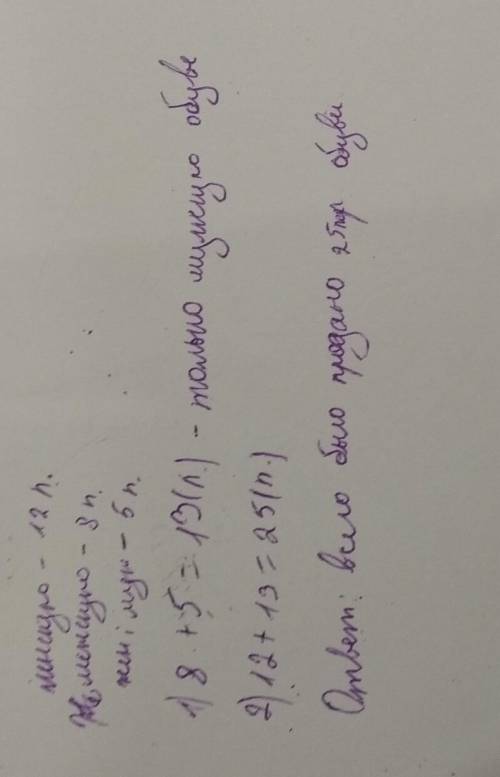 – 12 п.
– 8 п.
жен і – 5 п.
1) 8 + 5 = 13 (п.) – только мужскую обувь
2) 12 + 13 = 25 (п.)
Ответ: всего было продано 25 пар обуви